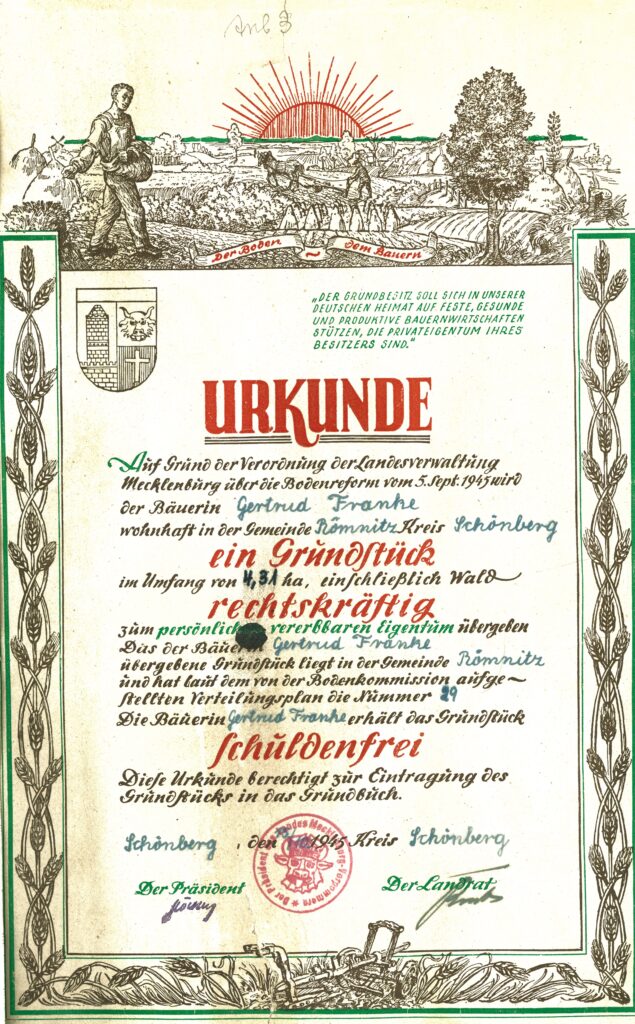 Anb 3
Der Boden ~ dem Bauern
„DER GRUNDBESITZ SOLL SICH IN UNSERER
DEUTSCHEN HEIMAT AUF FESTE, GESUNDE
UND PRODUKTIVE BAUERNWIRTSCHAFTEN
STÜTZEN, DIE PRIVATEIGENTUM IHRES
BESITZERS SIND."
URKUNDE
Auf Grund der Verordnung der Landesverwaltung
Mecklenburg über die Bodenreform vom 5. Sept. 1945 wird
der Bäuerin Gertrud Franke
wohnhaft in der Gemeinde Römnitz Kreis Schönberg
ein Grundstück
im Umfang von 4,31 ha, einschließlich Wald
rechtskräftig
zum persönlich vererbbaren Eigentum übergeben
Das der Bäuerin Gertrud Franke
übergebene Grundstück liegt in der Gemeinde Römnitz
und hat laut dem von der Bodenkommission aufge-
stellten Verteilungsplan die Nummer 29
Die Bäuerin Gertrud Franke erhält das Grundstück
schuldenfrei
Diese Urkunde berechtigt zur Eintragung des
Grundstücks in das Grundbuch.
Schönberg, den 1945 Kreis Schönberg
Der Präsident des Landes Mecklenburg-Vorpommern
Der Präsident Der Landrat